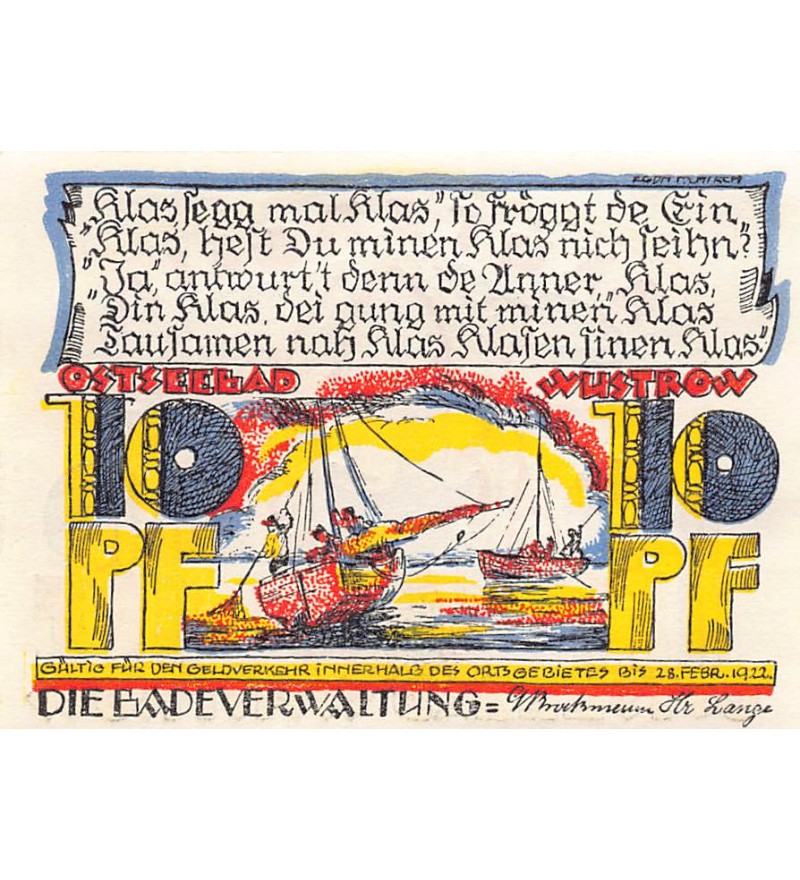 EGON TSCHIRCH
„Klas segg mal Klas,“ so fröggt de Ein,
„Klas, hest Du minen Klas nich seihn?“
„Ja“, antwurt't denn de Anner, „Klas,
„Din Klas, dei gung mit minen“ Klas
Tausamen nah Klas Klasen sinen Klas.“
OSTSEEBAD WUSTROW
10 10
PF PF
GÜLTIG FÜR DEN GELDVERKEHR INNERHALB DES ORTSGEBIETES BIS 28. FEBR. 1922.
DIE BADEVERWALTUNG = Hr Lange